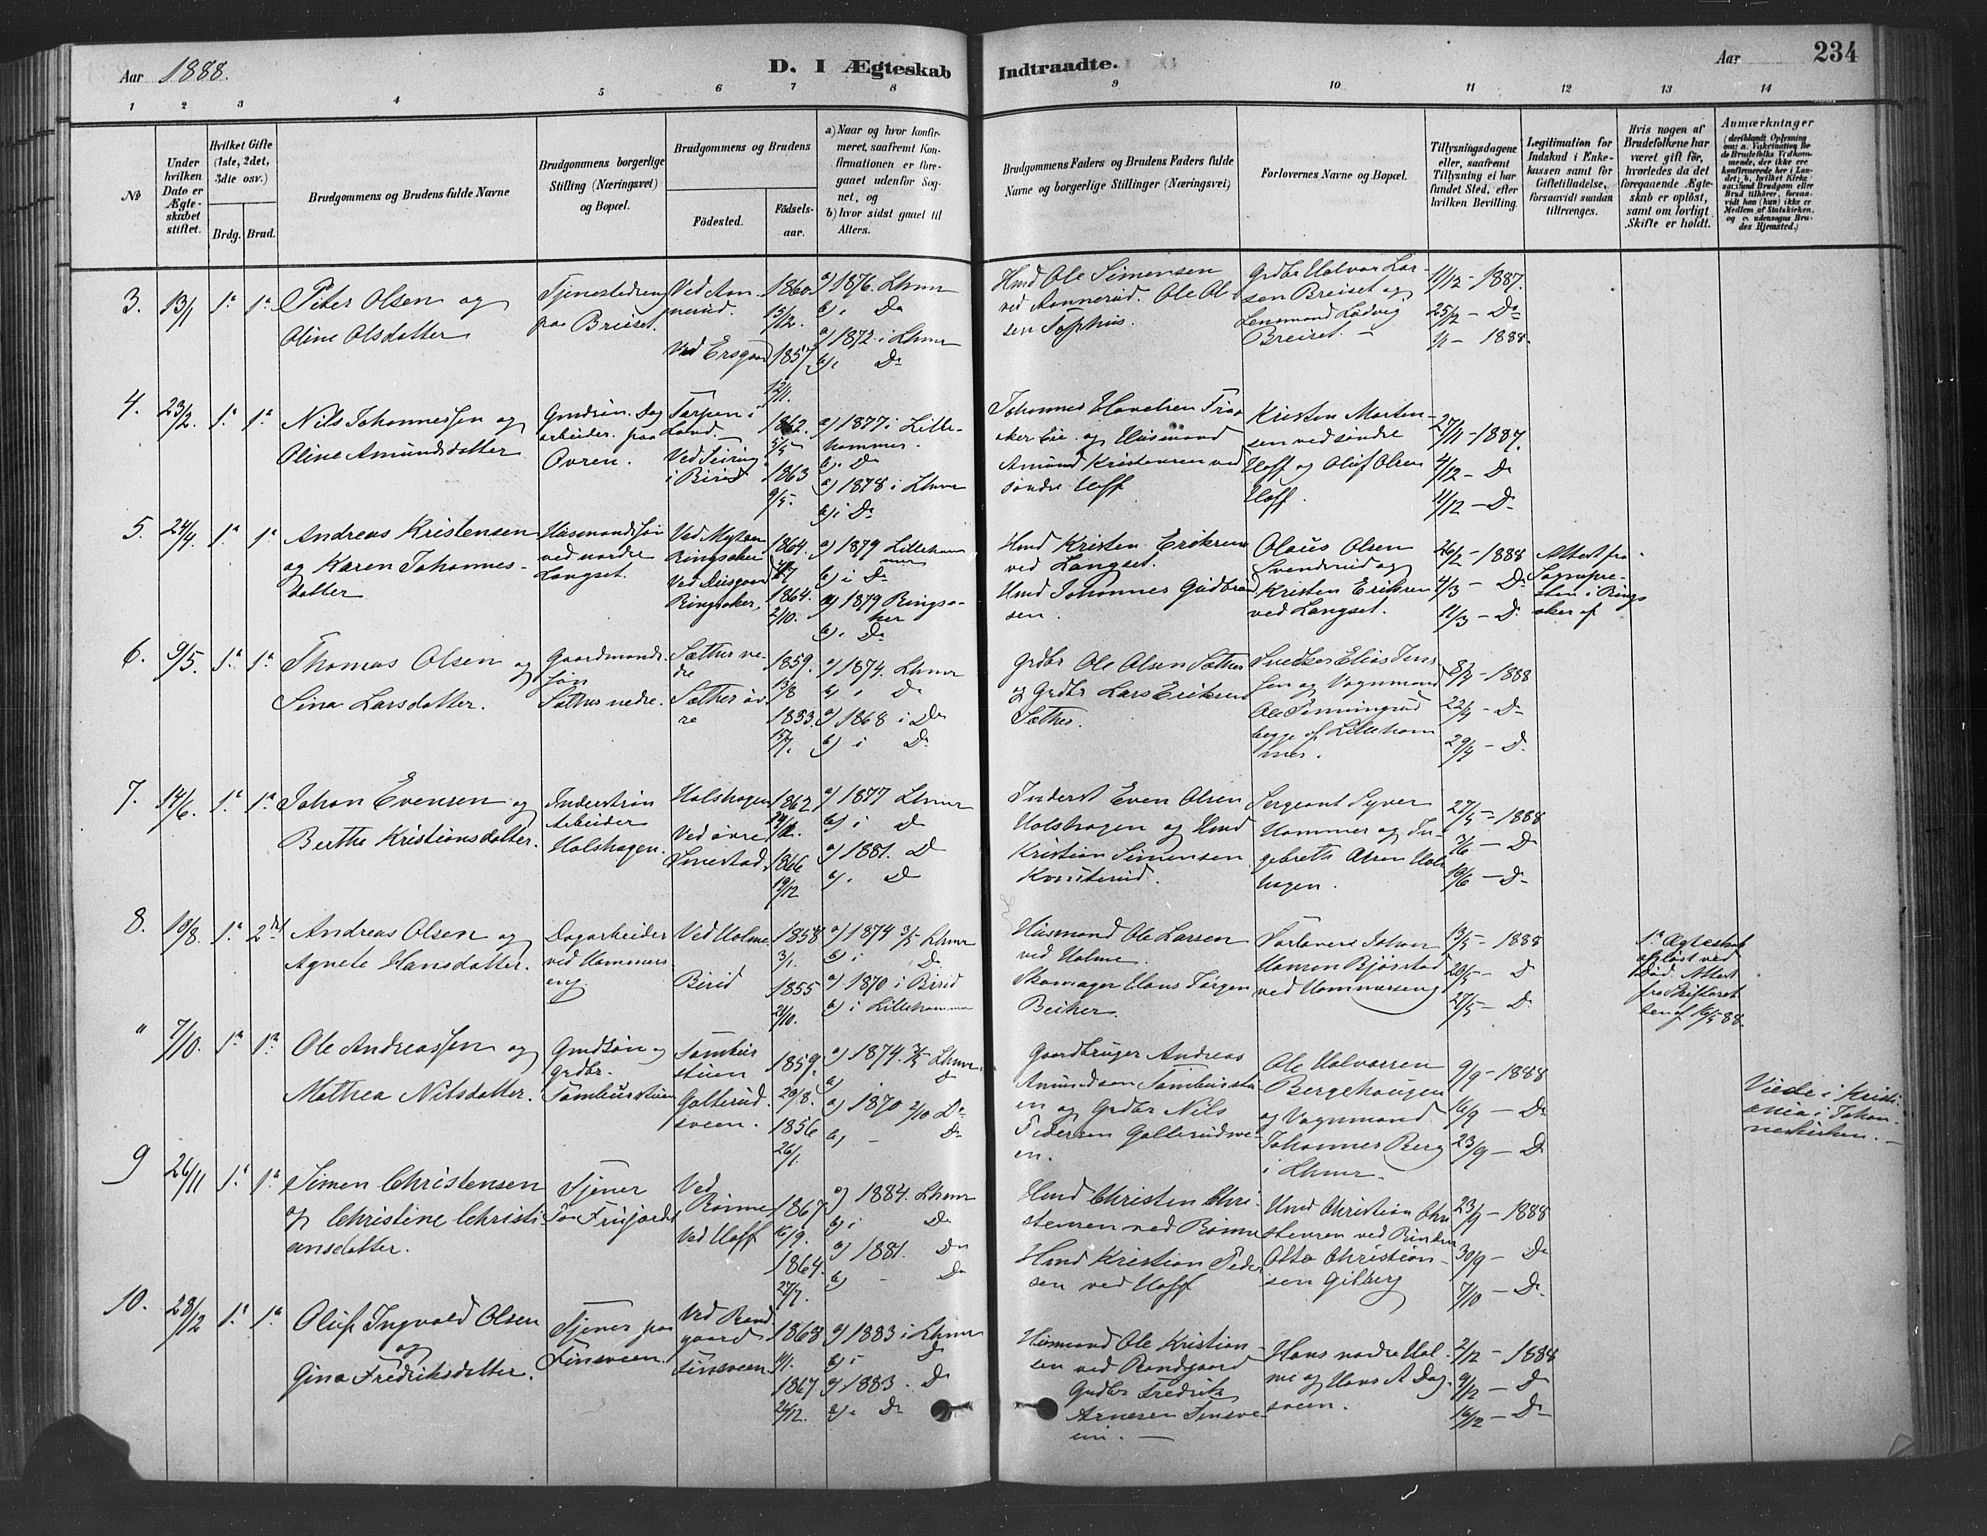 Aar 1888.
D. I Ægteskab
Indtraadte.
Aar
234
1 2 3 4 5 6 7 8
9 10 11 12 13 14
No
Under hvilken Dato er Ægteskabet stiftet.
Hvilket Gifte (1ste, 2det, 3die osv.)
Brdg. Brud.
Brudgommens og Brudens fulde Navne
Brudgommens borgerlige Stilling (Næringsvei) og Bopæl.
Brudgommens og Brudens
Fødested.
Fødselsaar.
a) Naar og hvor konfirmeret, saafremt Konfirmationen er foregaaet udenfor Sognet, og
b) hvor sidst gaaet til Alters.
Brudgommens Faders og Brudens Faders fulde Navne og borgerlige Stillinger (Næringsvei)
Forlovernes Navne og Bopæl.
Tillysningsdagene eller, saafremt Tillysning ei har fundet Sted, efter hvilken Bevilling.
Legitimation for Indskud i Enkekassen samt for Giftetilladelse, forsaavidt saadan tiltrænges.
Hvis nogen af Brudefolkene har været gift før, hvorledes da det foregaaende Ægteskab er opløst, samt om lovligt Skifte er holdt.
Anmærkninger
(deriblandt Oplysning om: a. Vakcination for de Brudefolks Vedkommende, der ikke ere konfirmerede her i Landet; b. hvilket Kirkesamfund Brudgom eller Brud tilhører, forsaavidt han (hun) ikke er Medlem af Statskirken, og c. udensogns Brudes Hjemsted.)
3. 13/1 1ª 1ª
Peter Olsen og
Oline Olsdatter
Tjenestedreng
paa Breiset.
Ved Aannerud.
Ved Ersgaard
1860
15/12.
1857
12/11.
a) 1876. Lhmr
b) i Do
a) 1872 i Lhmr
b) i Do
Hmd Ole Simensen
ved Aannerud. Ole Olsen Sophus.
Grdbr Halvor Larsen Breiset og
Lensmand Ludvig
Breiset. —
11/12 - 1887.
25/12 - Do
1/1 - 1888.
4. 23/2. 1ª 1ª
Nils Johannessen og
Oline Amundsdatter
Grudsøn. Dagarbeider paa
Ovren.
Torpen i
Land. —
Ved Seiring
i Birid
1862.
5/5
1863
9/5.
a) 1877 i Lillehammer.
b) i Do
a) 1878 i Lhmr
b) i Do
Johannes Havelsen Fraaker Eie. og Husmand
Amund Kristensen ved
søndre Hoff
Kristen Mortensen ved søndre
Hoff og Oluf Olsen
Hoff.
27/11 - 1887.
4/12 - Do
11/12 - Do
5. 24/4. 1ª 1ª
Andreas Kristensen
og Karen Johannesdatter
Husmandssøn
ved nordre
Langset.
Ringsaker
Ringsaker.
1864.
1864.
2/10.
a) 1879 Lillehammer
b) i Do
a) 1879 Ringsaker
b) i Do
Hmd Kristen Eriksen
ved Langset.
Hmd Johannes Gudbrandsen.
Olaus Olsen
Svendsrud og
Kristen Eriksen
ved Langset.
26/2 - 1888
4/3 - Do
11/3 - Do
Attest fra
Sognepresten i Ringsaker af
6. 9/5. 1ª 1ª
Thomas Olsen og
Sina Larsdatter.
Gaardmands
søn
Sæther nedre.
Sæther nedre
Sæther øvre
1859.
13/8
1853.
15/7.
a) 1874. Lhmr
b) i Do
a) 1868 i Do
b) i Do
Grdbr Ole Olsen Sæther
og Grdbr Lars Eriksen
Sæther.
Snedker Elias Jensen og Vognmand
Ole Sønningrud
begge af Lillehammer.
8/4 - 1888
22/4 - Do
29/4 - Do
7. 14/6. 1ª 1ª
Johan Evensen og
Berthe Kristiansdatter.
Inderstsøn
Arbeider
Holshagen.
Holshagen
Ved øvre
Smestad.
1862
1866
19/12
a) 1877 Lhmr
b) i Do
a) 1881. Do
b) i Do
Inderst Even Olsen
Holshagen og Hmd
Kristian Simensen
Kvisterud.
Sergeant Syver
Hammer og Ingebreth Olsen Holshagen.
27/5 - 1888
3/6 - Do
10/6 - Do
8. 18/8. 1ª 2det
Andreas Olsen og
Agnete Hansdatter.
Dagarbeider
ved Hammerseng.
Ved Holme
Birid
1858
3/1.
1855
21/10.
a) 1874 3/5 Lhmr
b) i Do
a) 1870 i Birid
b) i Lillehammer
Husmand Ole Larsen
ved Holme.
Skomager Hans Jørgen
Beiker.
Forlovere Johan
Hansen Bjørstad
ved Hammerseng
13/5 - 1888
20/5 - Do
27/5 - Do
1ª Ægteskab
opløst ved
Død. Attest
fra Skifteretten af 16/5 88.
" 7/10. 1ª 1ª
Ole Andreassen og
Mathea Nilsdatter.
Grudsøn og
Grdbr.
Sambusstuen
Sambusstuen
Galterudsveen.
1859.
20/8.
1856
26/1.
a) 1874. 3/5 Lhmr.
b) Do
a) 1870 2/10 Do
b) - Do
Gaardbruger Andreas
Amundsen Sambusstuen og Grdbr Nils
Pedersen Galterudsveen.
Ole Halvorsen
Bergehaugen
og Vognmand
Johannes Berg
i Lhmr.
9/9 - 1888
16/9 - Do
23/9 - Do
Viede i Kristiania i Johanneskirken. —
9 26/11 1ª 1ª
Simen Christensen
og Christine Christiansdatter.
Tjener
Ved
Rønne
Ved Hoff
1867
16/9.
1864.
27/7.
a) 1884. Lhmr
b) i Do
a) 1881. Do
b) - Do
Hmd Christen Christensen ved Rønne
Hmd Kristian Pedersen ved Hoff
Hmd Christian Christensen ved Rinden
Otto Christiansen Gilberg
23/9 - 1888
30/9 - Do
7/10 - Do
10. 28/12 1ª 1ª
Oluf Ingvald Olsen
og
Gina Fredriksdatter.
Tjener paa
Finsveen.
Ved Randgaard
Finsveen
1868
1867
26/12.
a) 1883 i Lhmr
b) i Do
a) 1883. Do
b) i Do
Husmand Ole Kristiansen ved Randgaard
Grdbr Fredrik
Arnesen Finsveen. —
Hans nordre Holme og Hans A Dagsveen.
2/12 - 1888
9/12 - Do
16/12 - Do